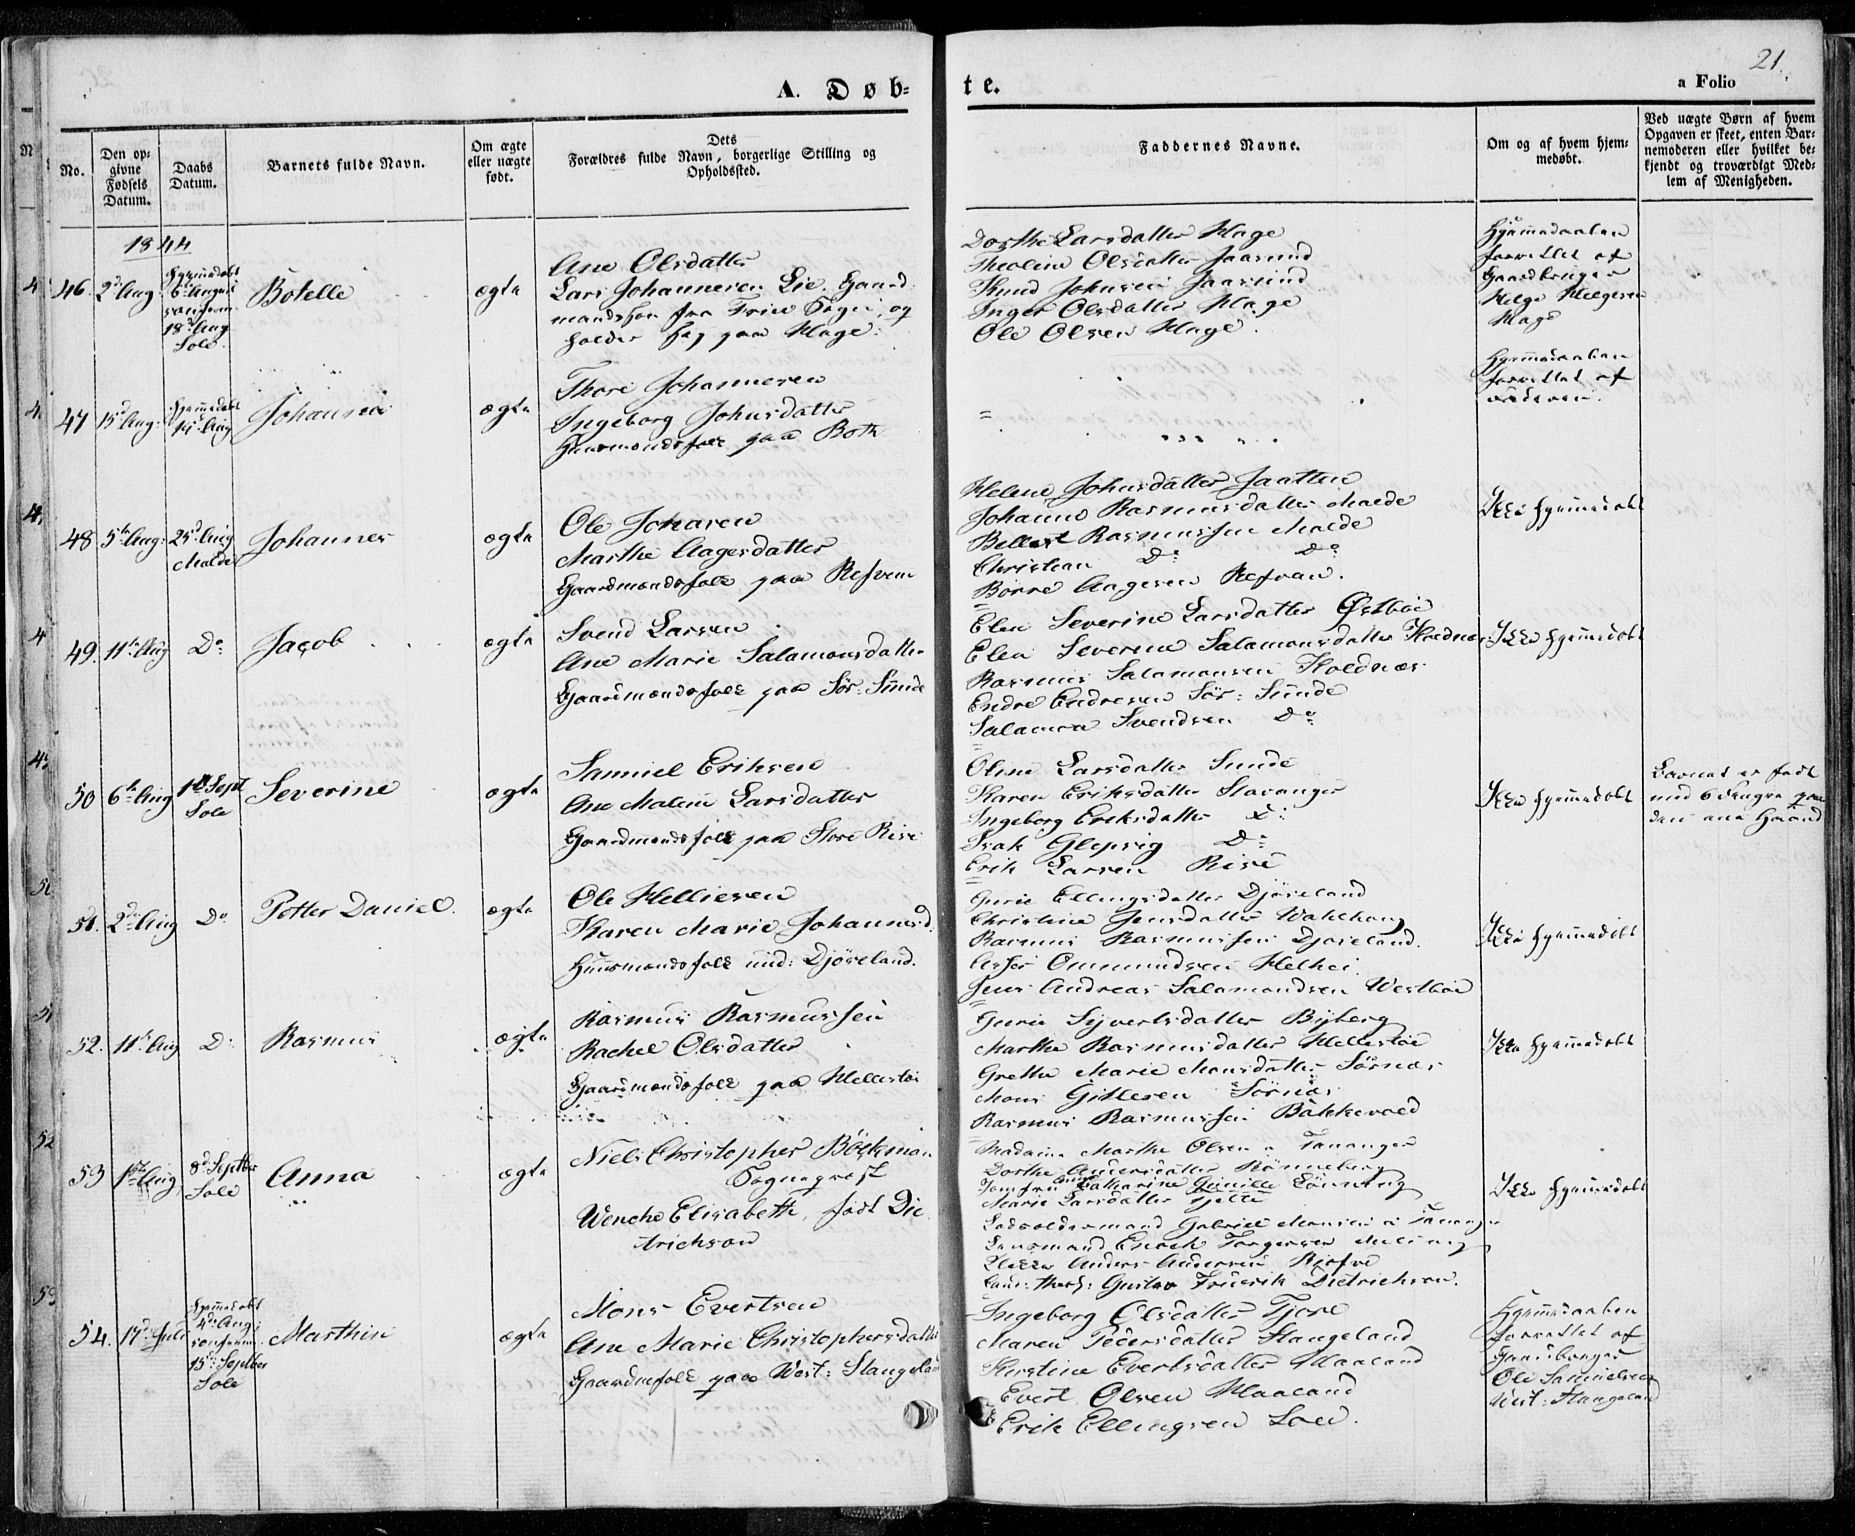 21.
A. Døb-
te.
a Folio
No.
Den op-
givne
Fødsels
Datum.
Daabs
Datum.
Barnets fulde Navn.
Om ægte
eller uægte
født.
Dets
Forældres fulde Navn, borgerlige Stilling og
Opholdssted.
Faddernes Navne.
Om og af hvem hjem-
medøbt.
Ved uægte Børn af hvem
Opgaven er skeet, enten Bar-
nemoderen eller hvilket be-
kjendt og troværdigt Med-
lem af Menigheden.
1844
46 2d Aug. Hjemmedøbt
6te August
confirm.
18d Aug
Sole.
Botelle
ægte
Ane Olsdatter
Lars Johannesen Lie, Gaard
mandsfolk fra Sogn, og
holder paa Hage.
Dorthe Larsdatter Hage
Theoline Olsdatter Jaasund
Knud Johnsen Jaasund
Inger Olsdatter Hage
Ole Olsen Hage.
Hjemmedaaben
forrettet af
Gaardbruger
Helge Helgesen
Hage
47 15d Aug: Hjemmedøbt
Aug
Johanne
ægte
Thore Johannesen
Ingeborg Johnsdatter
Huusmandsfolk paa Both
Hjemmedaaben
forrettet af
48 5te Aug: 25d Aug
Malde
Johannes
ægte
Ole Jonasen
Marthe Aagesdatter
Gaardmandsfolk paa Refvem
Helene Johnsdatter Jaatten
Johanne Rasmusdatter Malde
Bellest Rasmussen Malde
Christian Do Do
Børre Aagesen Refvem.
Ikke hjemmedøbt
49. 11te Aug Do
Jacob
ægte
Svend Larsen
Ane Marie Salamonsdatter
Gaardmandsfolk paa Sør: Sunde
Elen Severine Larsdatter Østbøe
Elen Severine Salamonsdatter Holdnæs
Rasmus Salamonsen Holdnæs
Endre Endresen Sør: Sunde
Salamon Svendsen Do
Ikke hjemmedøbt
50 6te Aug 1ste Sept
Sole
Severine
ægte
Samuel Eriksen
Ane Malene Larsdatter
Gaardmandsfolk paa Store Risse
Oline Larsdatter Sunde
Karen Eriksdatter Stavanger
Ingeborg Eriksdatter Do
Isak Do
Erik Larsen Risse
Ikke hjemmedøbt
Barnet er født
med 6 Fingre paa
den ene Haand
51. 2den Aug Do
Petter Daniel.
ægte
Ole Helliesen
Karen Marie Johannesd.
Huusmandsfolk und: Djøseland.
Gurie Ellingsdatter Djøseland
Christine Jensdatter
Rasmus Rasmussen Djøseland.
Ommundsen
Jens Andreas Salamondsen Westbøe
Ikke hjemmedøbt
52. 11te Aug Do
Rasmus
ægte
Rasmus Rasmussen
Rachel Olsdatter
Gaardmandsfolk paa Hellestøe
Gurie Syvertsdatter Byberg
Marthe Rasmusdatter Hellestøe
Grethe Marie Monsdatter Sørnæs
Mons Gitlesen Sørnæs
Rasmus Rasmussen Bakkevold
Ikke hjemmedøbt
53 1ste Aug 8d Septbr
Sole
Anna
ægte
Niels Christopher Bøckman
Sogneprest
Wenche Elisabeth, født Die
trichson
Madame Marthe Olsen a Tananger
Dorthe Andersdatter Rønneberg
Jomfru Catharine Gunille Lønning
Marie Larsdatter Tjelte
Gabriel Monsen a Tananger
Lensmand Enoch Torgersen Meling
Anders Andersen
Cand: theol: Gustav Frederik Dietrichson.
Ikke hjemmedøbt
54. 17d Juli Hjemmedøbt
4de Aug:
confirm.
15d Septbr
Sole
Marthin
ægte
Mons Evertsen
Ane Marie Christophersdatter
Gaardmfolk paa West: Stangeland
Ingeborg Olsdatter Tjore
Maren Pedersdatter Stangeland
Kirstine Evertsdatter Haaland
Evert Olsen Haaland
Erik Ellingsen Soen.
Hjemmedaaben
forrettet af
Gaardbruger
Ole Samuelsen
West: Stangeland